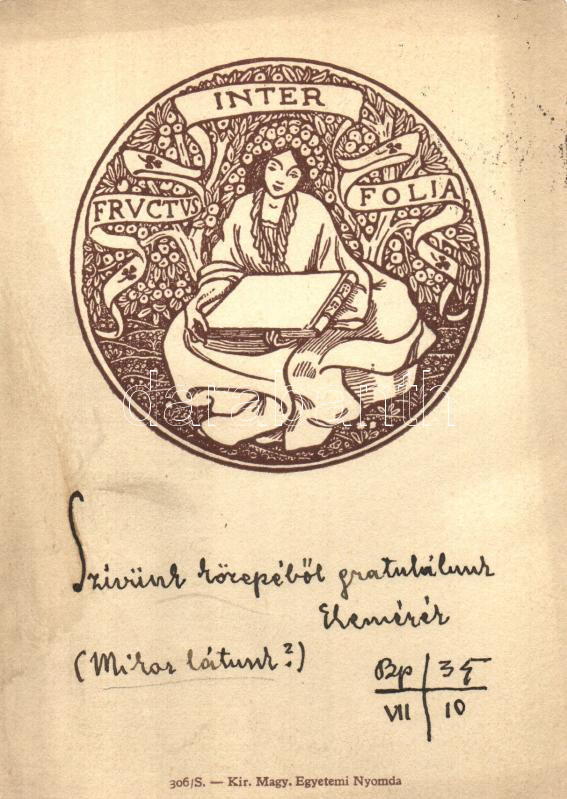 INTER
FRVCTVS
FOLIA
Szívünk közepéből gratulálunk
Elemérék
(Mikor látunk?)
Bp 35
VII 10
306/S. — Kir. Magy. Egyetemi Nyomda
darabanth